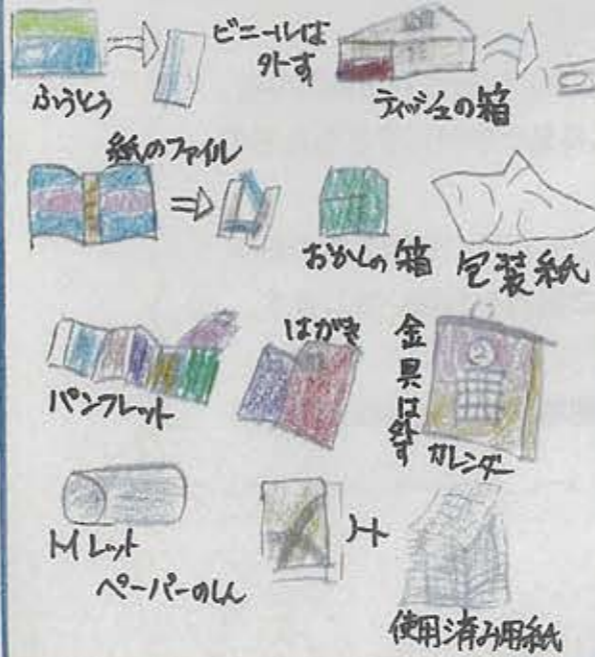 ビニールは
外す
ふうとう
ティッシュの箱
紙のファイル
おかしの箱
包装紙
パンフレット
はがき
金具は外す
カレンダー
トイレット
ペーパーのしん
使用済み用紙